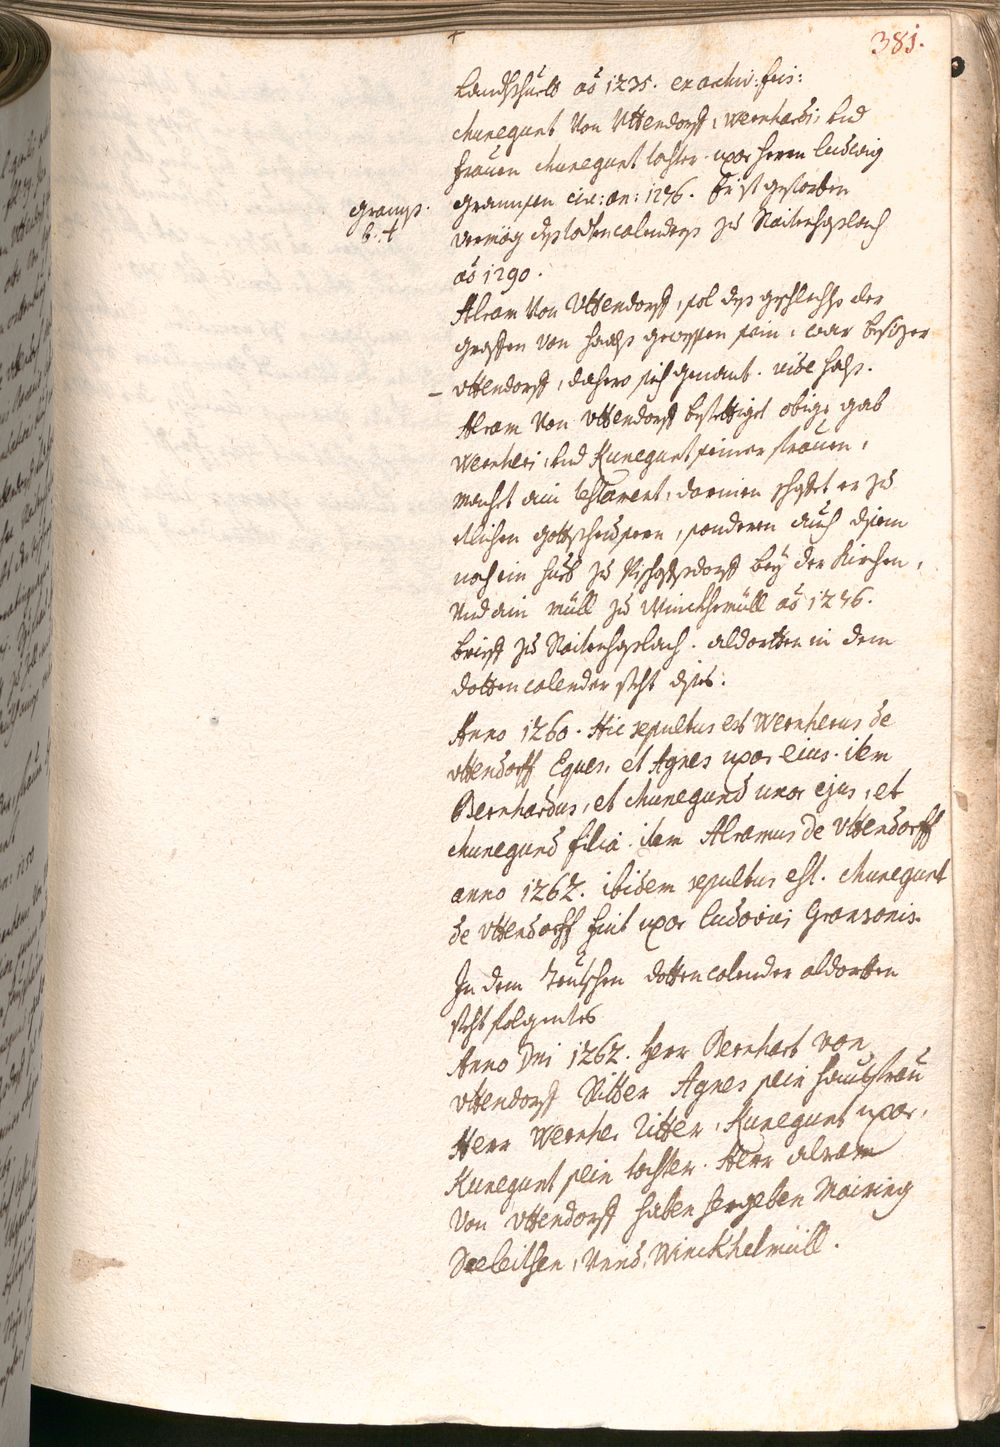 381.
Landtshuett aō 1235. ex archiv: fris:
Chunegunt Von Uttendorff, Wernhardi, Vnd
frauen Chunegunt tochter. uxor herrn Ludwig
Gransen cir: an: 1276. Er ist gestorben
Grans.
vermög dess todtencalenders zu Raitenhaslach
aō 1290.
Alram Von Uttendorff, sol dess geschlechts der
graffen von Haals gewessen sein, war besizer
Uttendorff, dahero sich genant. vide Hals.
Alram Von Uttendorff bestettiget obige gab
Wernheri, Vnd Kunegunt seiner frauen,
macht ain testament, darinen schafft er zu
etlichen gottsheusern, sonderen auch disem
noch ein hueb zu Pischeldorff bey der Kirchen,
Vnd ain müll zu Winckhemüll aō 1276.
brieff zu Raitenhaslach. aldortten in dem
dottencalender steht dises:
Anno 1260. Hic sepultus est Wernherus de
Uttendorff Eques, et Agnes uxor eius. item
Bernhardus, et Chunegund uxor ejus, et
Chunegund filia. item Alramus de Uttendorff
anno 1262. ibidem sepultus est. Chunegunt
de Uttendorff fuit uxor Ludovici Gransonis.
In dem Teutschen dottencalender aldortten
steht folgentes
Anno Dni 1262. Herr Bernhart von
Uttendorff Ritter Agnes sein hausfrau
Herr Wernher Ritter, Kunegunt uxor,
Kunegunt sein tochter. Herr alram
Von Uttendorff haben hergeben Mairing
Vnnd Winckhelmüll.